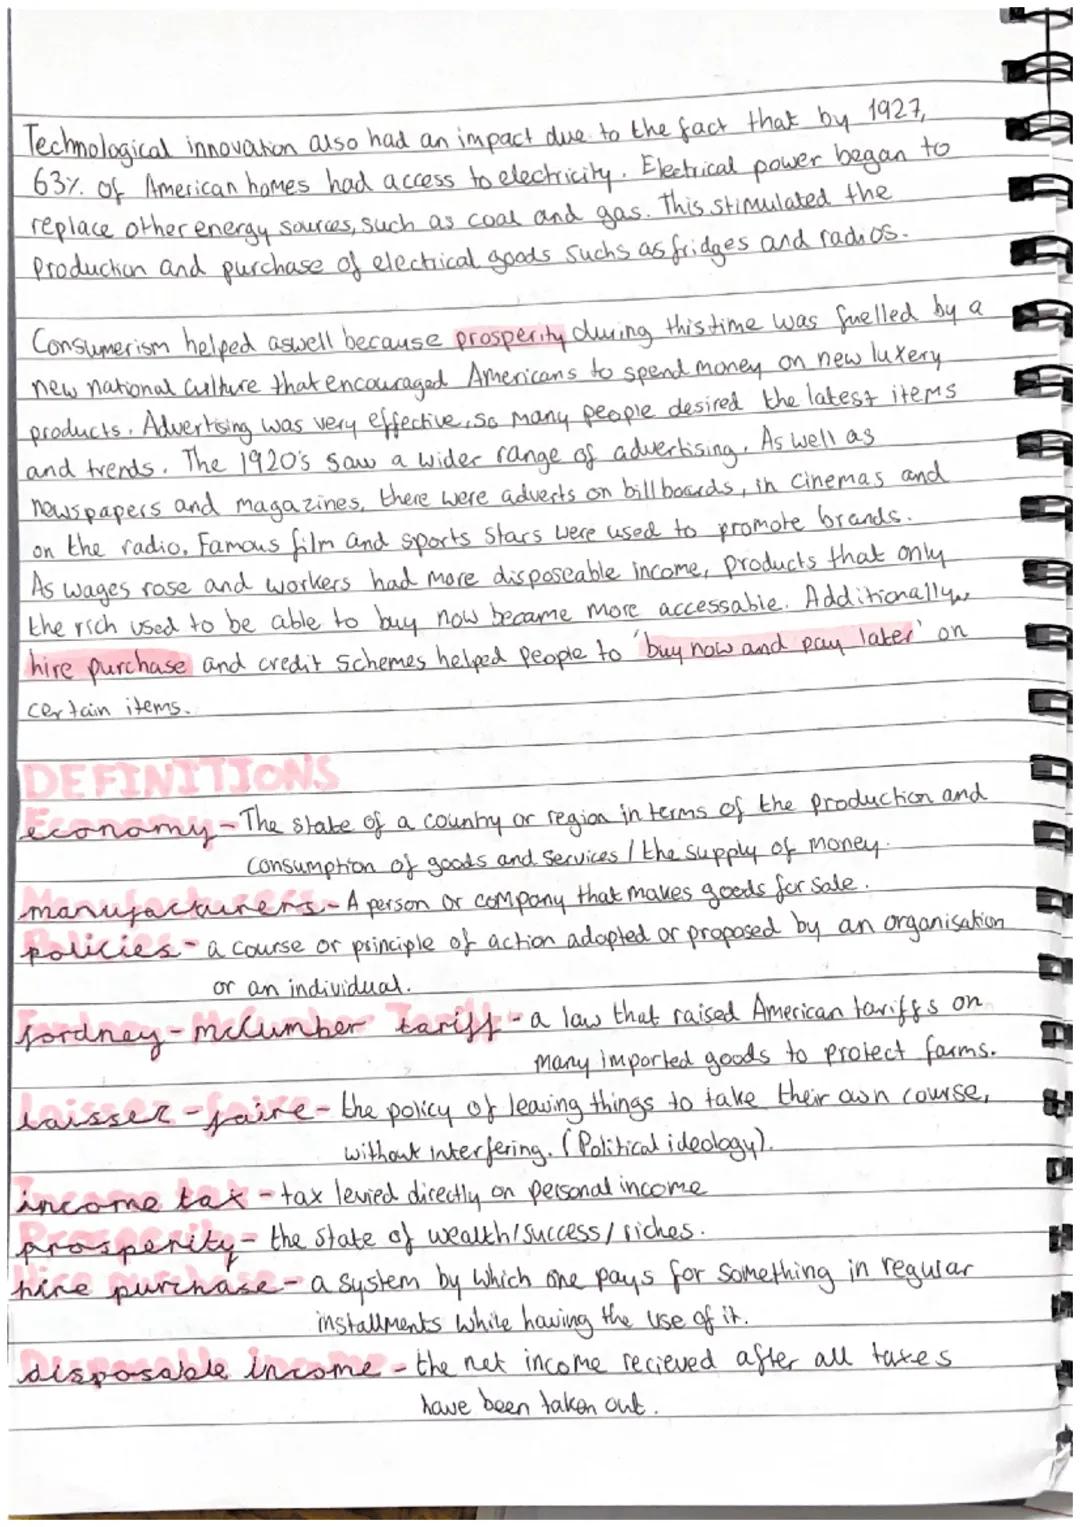 Technological innovation also had an impact due to the fact that by 1927,
63% of American homes had access to electricity. Electrical power began to
replace other energy sources, such as coal and gas. This stimulated the
Production and purchase of electrical goods suchs as fridges and radios.
Consumerism helped aswell because prosperity during this time was fuelled by a
new national culture that encouraged Americans to spend money on new luxery
products. Advertising was very effective, so many people desired the latest items
and trends. The 1920's saw a wider range of advertising. As well as
newspapers and magazines, there were adverts on billboards, in cinemas and
on the radio. Famous film and sports stars were used to promote brands.
As wages rose and workers had more disposeable income, products that only
the rich used to be able to buy now became more accessable. Additionally,
hire purchase and credit schemes helped people to 'buy now and pay later' on
certain items.
DEFINITIONS
economy - The state of a country or region in terms of the production and
consumption of goods and services / the supply of money.
manufacturers - A person or company that makes goods for sale.
policies - a course or principle of action adopted or proposed by an organisation
or an individual.
fordney - mcCumber tariff - a law that raised American tariffs on
many imported goods to protect farms.
laissez - faire - the policy of leaving things to take their own course,
without interfering. (Political ideology).
income tax - tax levied directly on personal income
prosperity - the state of wealth/success/riches.
hire purchase - a system by which one pays for something in regular
installments while having the use of it.
disposable income - the net income recieved after all taxes
have been taken out.